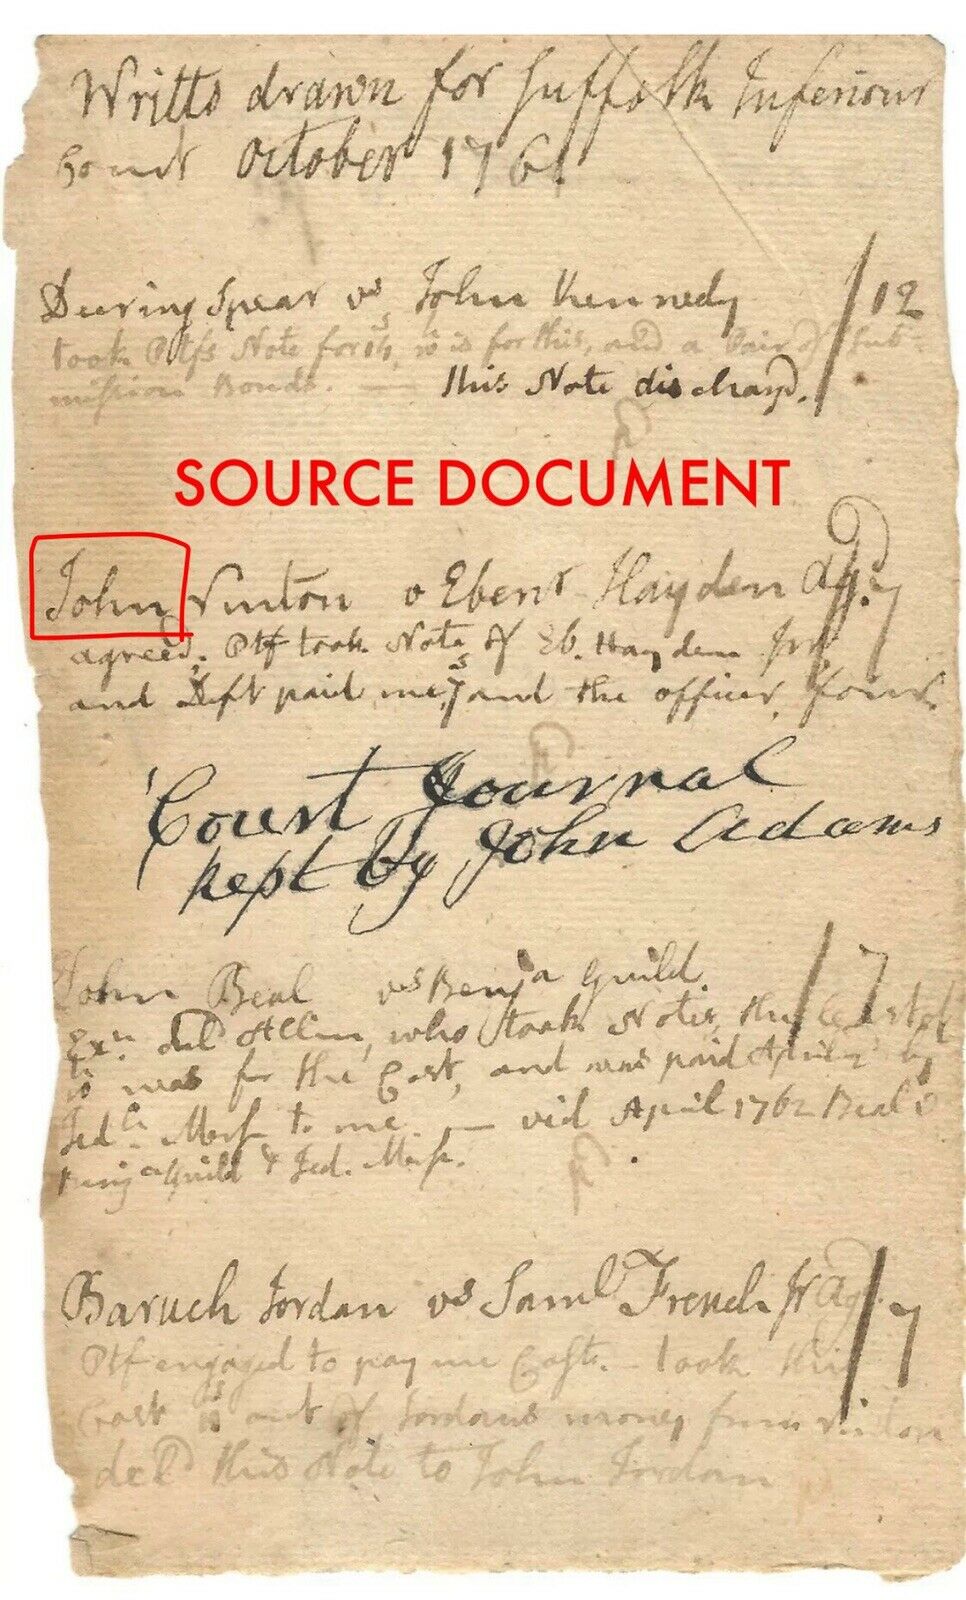 Writts drawn for Suffolk Inferiour
Court October 1761
Deering Spear vs John Kennedy /12
took Ptfs Note for it is for this, and a Pair of Sub-
mission Bonds. — this Note dischargd.
SOURCE DOCUMENT
John Vinton v Ebenr Hayden Agd. 7
agreed. Ptf took Note of Eb. Hayden Jnr.
and Deft paid me 7s and the officer four.
Court Journal
kept by John Adams
John Beal vs Benja Guild. /7
Exn. deld Allin, who took Notes, this
was for the Cost, and was paid April by
Jedh Morse to me — vid April 1762 Beal v
Benja Guild & Jed. Morse.
Baruch Jordan vs Saml French Jr Agd /7
Ptf engaged to pay me Cost. took this
Cost out of Jordans money from Vinton
deld this Note to John Jordan